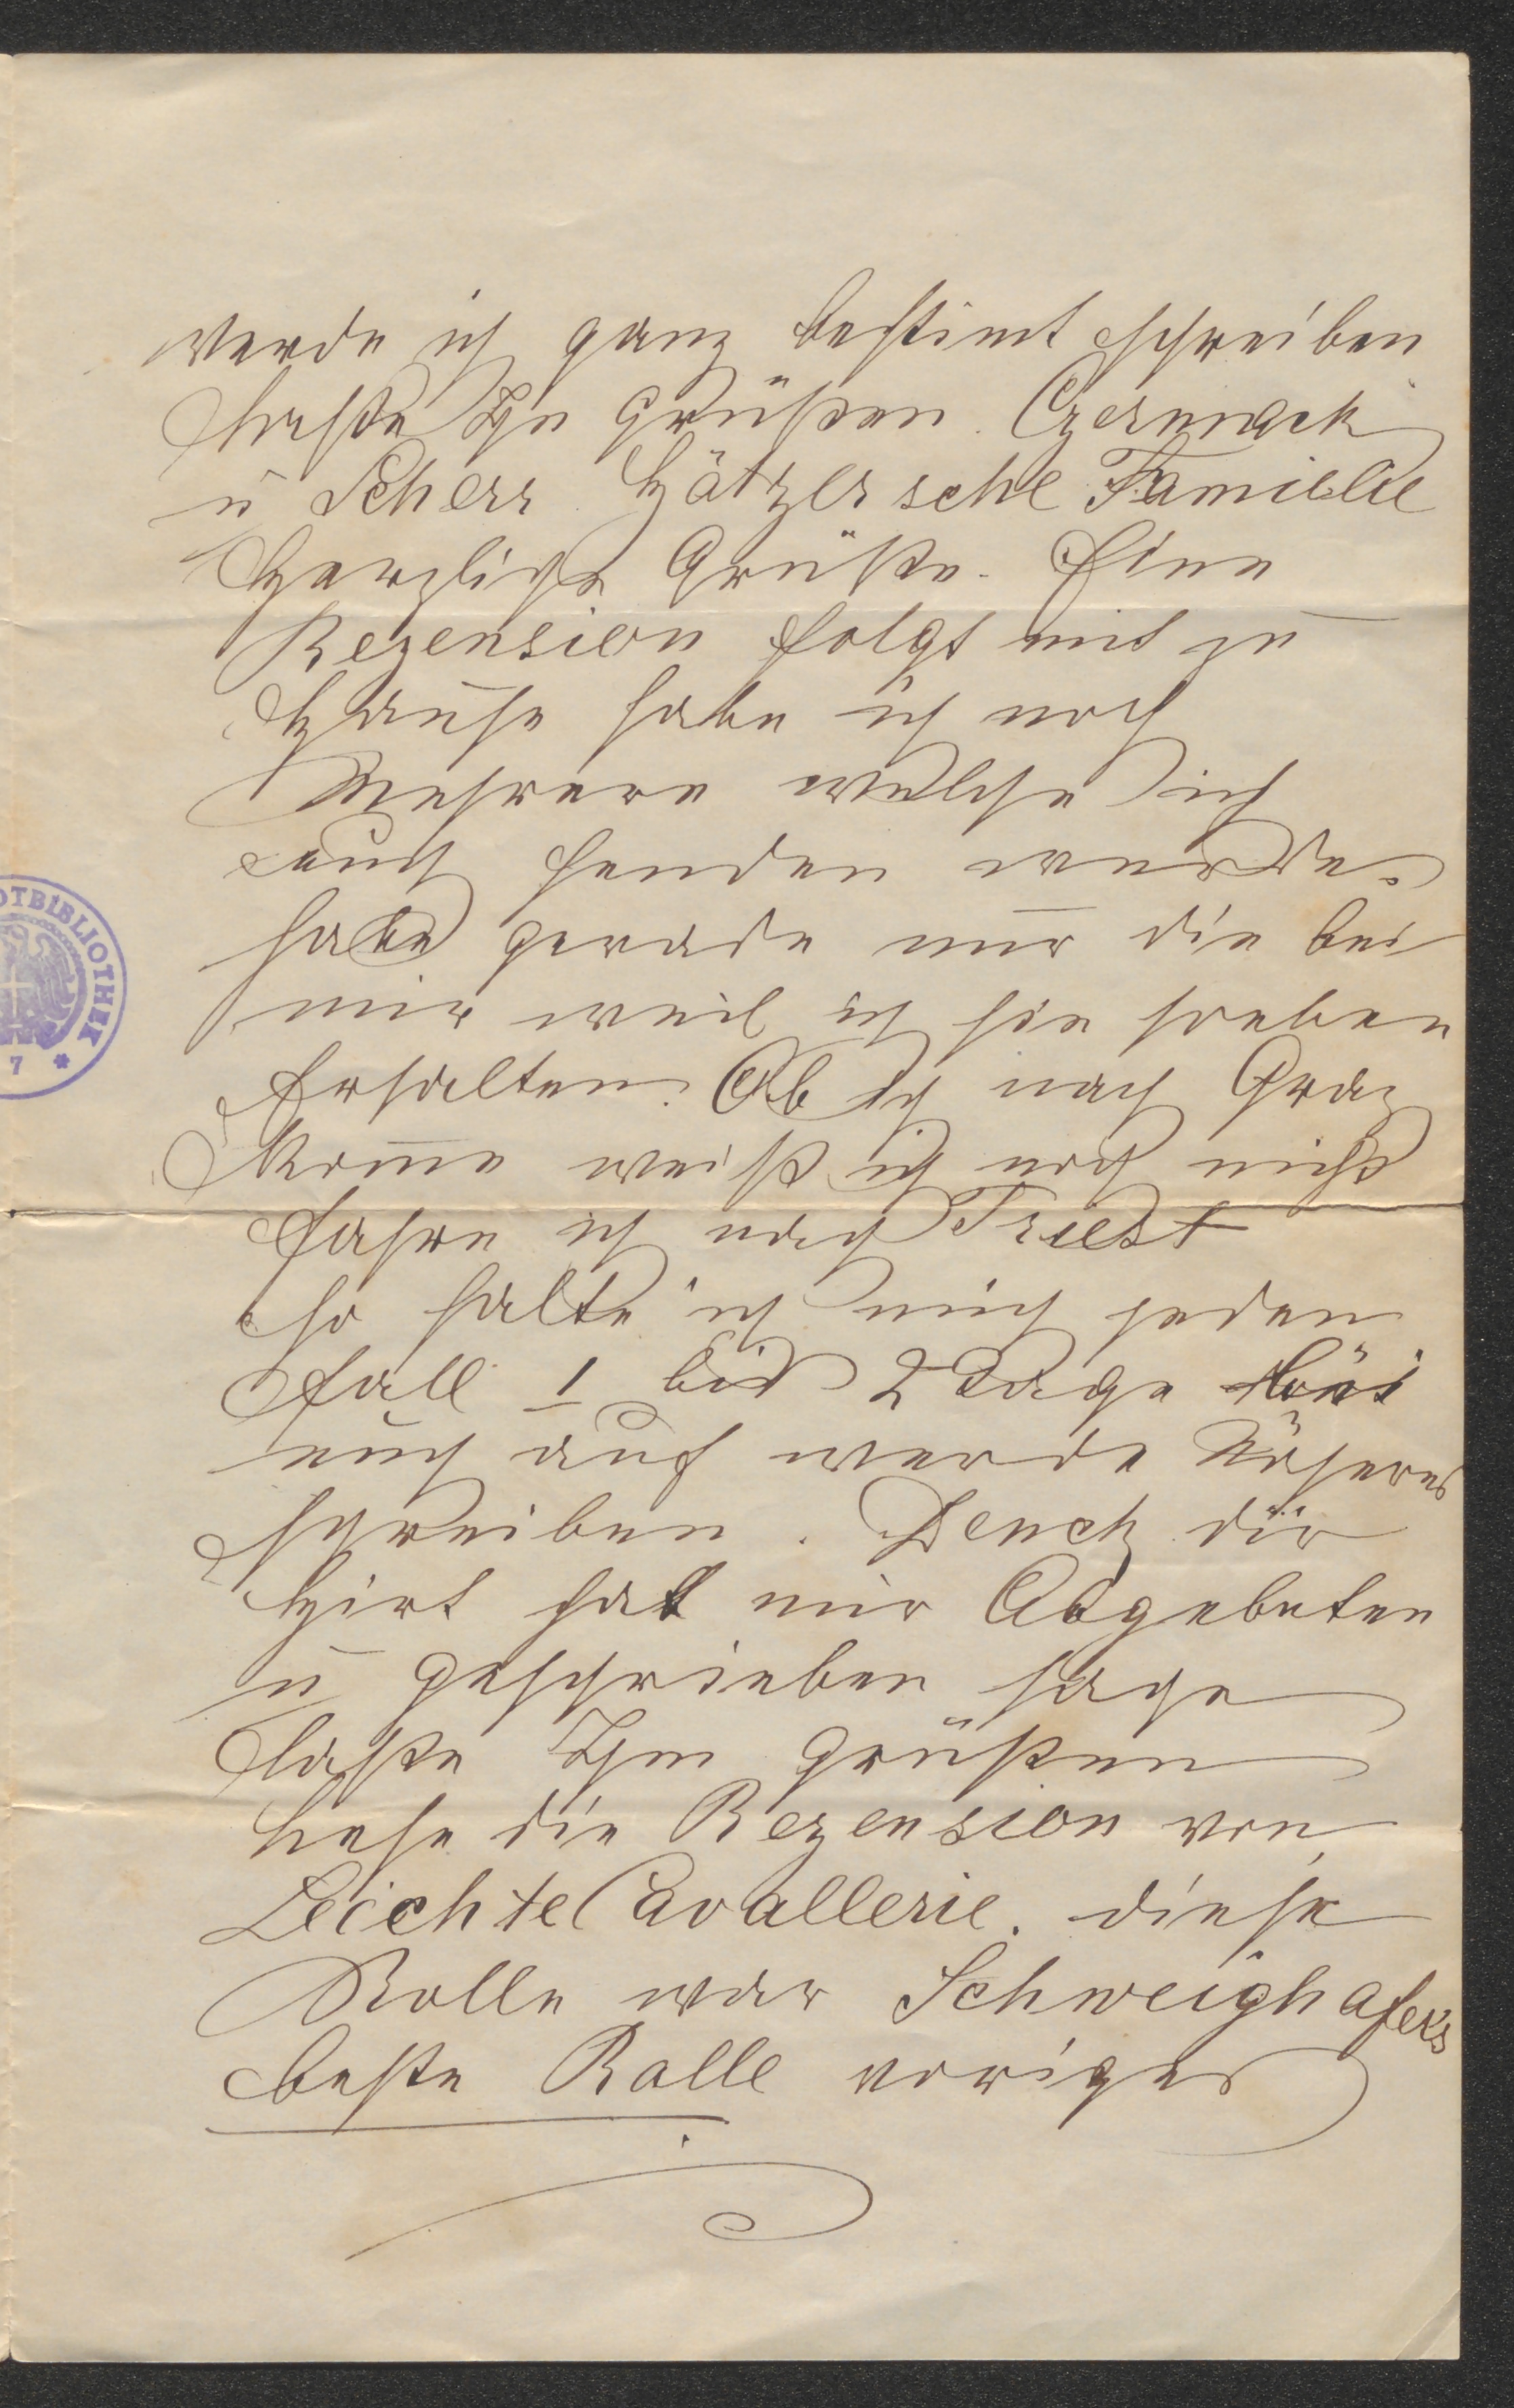 werde ich ganz bestim̄t schreiben
laße Ihn grüßen. Czermack
ū Scherr Hätzersche Famielie
Herzliche Grüße. Eine
Rezension folgt mit zū
Haūse habe ich noch
Mehrere welche ich
eūch senden werde.
habe gerade nūr die bei
mir weil ich sie soeben
Erhalten. Ob ich nach Graz
kom̄e weiß ich noch nicht
fahre ich nach Triest
so halte ich mich jeden
fall 1 bis 2 Tage bei
eūch auf werde Näheres
schreiben. Denck dir
Hirt hat mir Abgebeten
ū geschrieben sage
laße Ihm grüßen
Lese die Rezension von
Leichte Cavallerie. diese
Rolle war Schweighofers
beste Rolle voriges
TBIBLIOTHEK
7 *